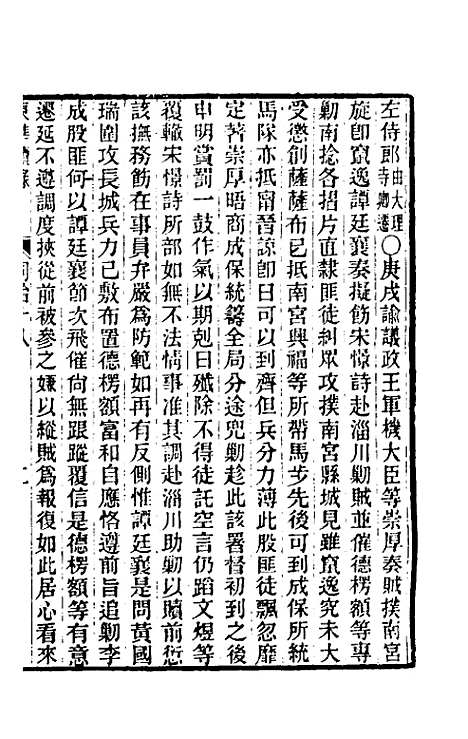 左侍郎由大理寺卿遷〇庚戌諭議政王軍機大臣等崇厚奏賊撲南宮
旋卽竄逸譚廷襄奏擬飭宋憬詩赴淄川勦賊並催德楞額等專
勦南捻各摺片直隸匪徒糾眾攻撲南宮縣城見雖竄逸究未大
受懲創薩薩布已抵南宮興福等所帶馬步先後可到成保所統
馬隊亦抵甯晉諒卽日可以到齊但兵分力薄此股匪徒飄忽靡
定著崇厚晤商成保統籌全局分途兜勦趁此該署督初到之後
申明賞罰一鼓作氣以期剋日殲除不得徒託空言仍蹈文煜等
覆轍宋憬詩所部如無不法情事准其調赴淄川助勦以贖前愆
該撫務飭在事員弁嚴爲防範如再有反側惟譚廷襄是問黃國
瑞圍攻長城兵力已敷布置德楞額富和自應恪遵前旨追勦李
成股匪何以譚廷襄節次飛催尙無跟蹤覆信是德楞額等有意
遷延不遵調度挾從前被參之嫌以縱賊爲報復如此居心看來